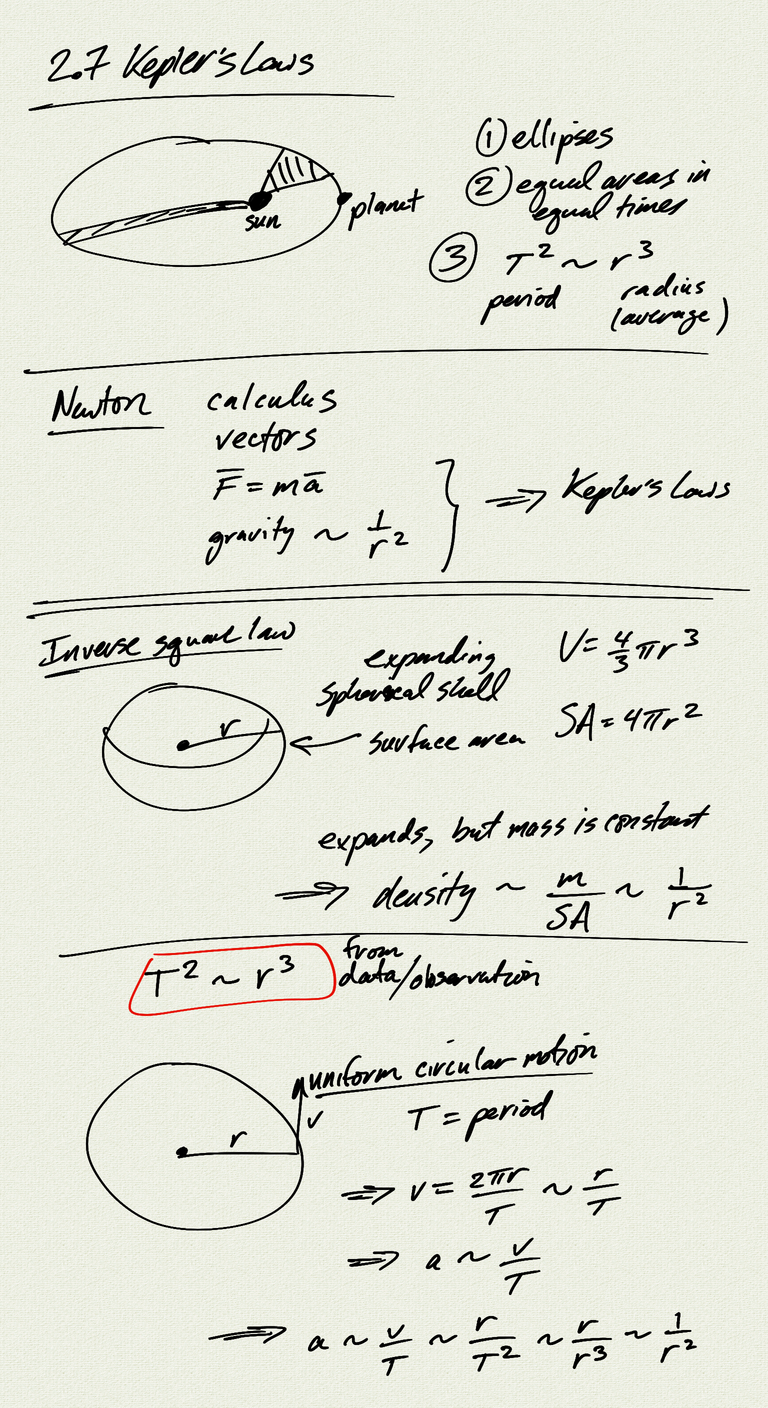 2.7 Kepler's Laws
sun
planet
① ellipses
② equal areas in
equal times
③ T² ~ r³
period radius
(average)
Newton
calculus
vectors
F̅ = ma̅
gravity ~ 1/r²
} ⇒ Kepler's Laws
Inverse square law
r
expanding
spherical shell
← surface area
V = 4/3 πr³
SA = 4πr²
expands, but mass is constant
⇒ density ~ m/SA ~ 1/r²
T² ~ r³
from
data/observation
r
v
uniform circular motion
T = period
⇒ v = 2πr/T ~ r/T
⇒ a ~ v/T
⇒ a ~ v/T ~ r/T² ~ r/r³ ~ 1/r²